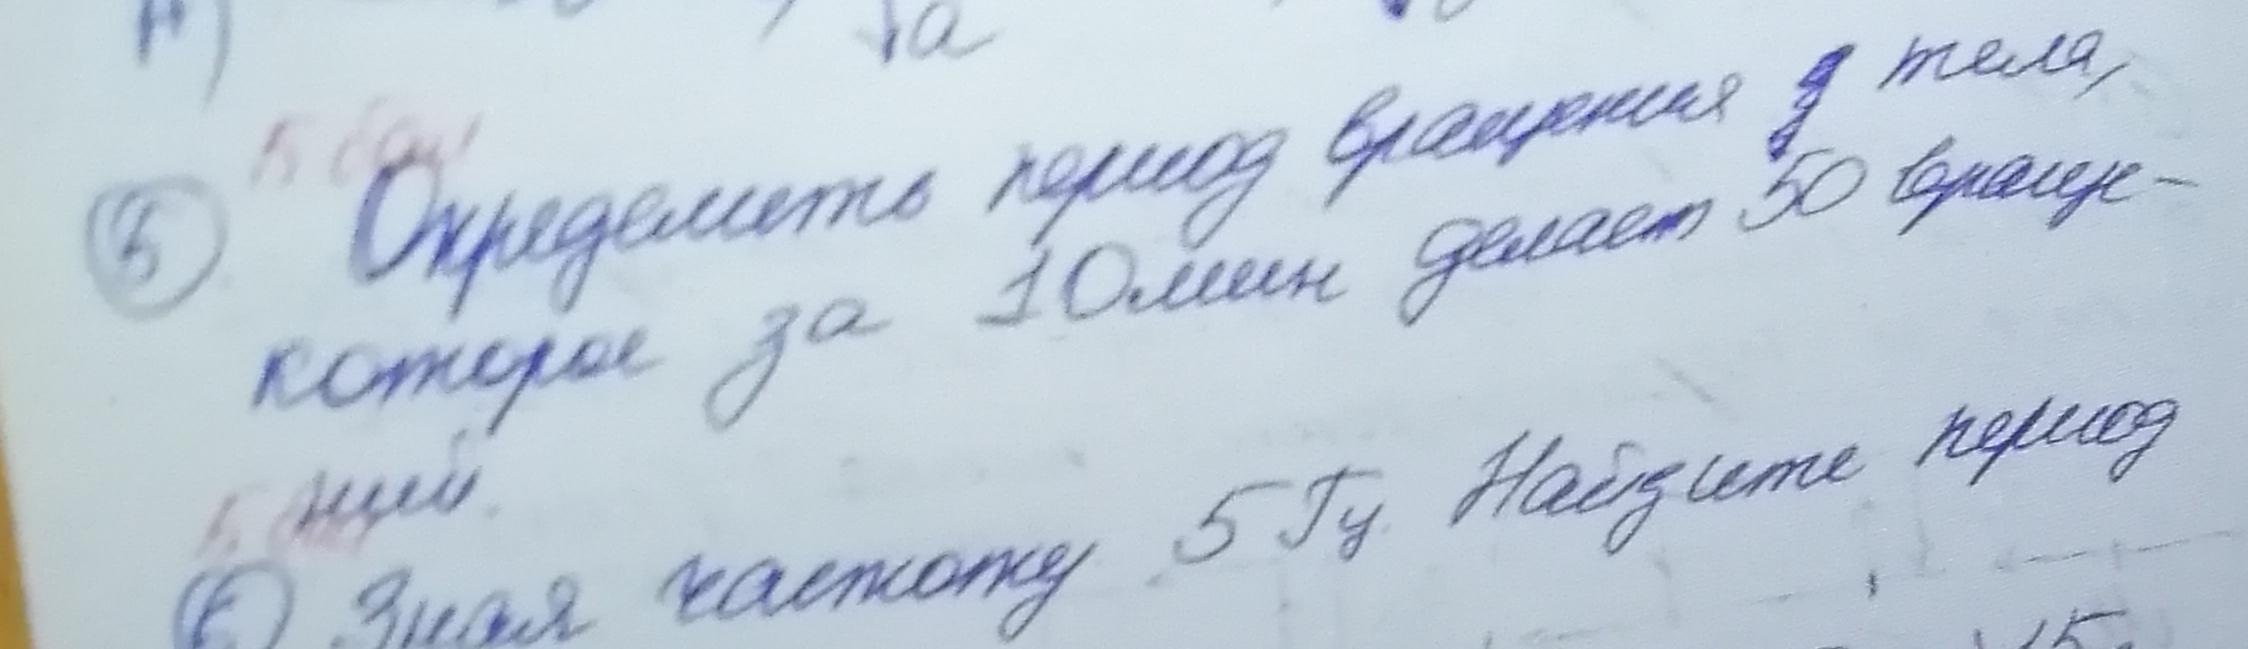 √a
5 Определить период вращения тела,
которое за 10мин делает 50 враще-
ний.
6 Зная частоту 5 Гц. Найдите период